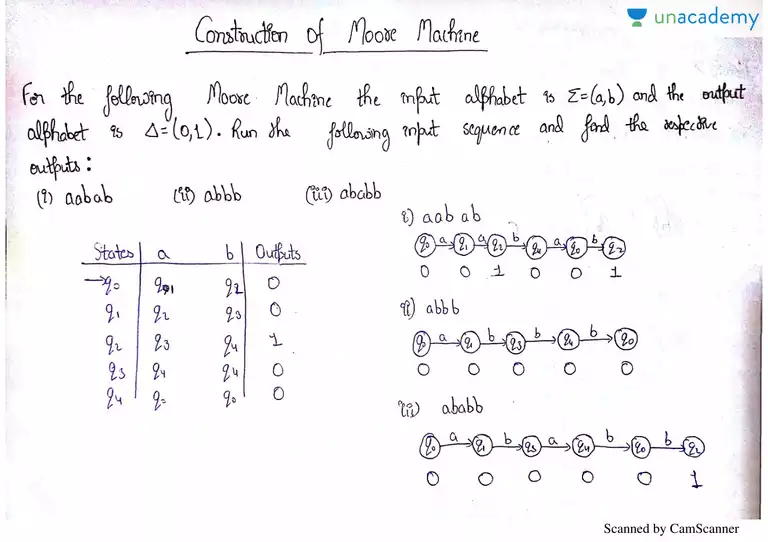 unacademy
Construction of Moore Machine
For the following Moore Machine the input alphabet is Σ=(a,b) and the output
alphabet is Δ=(0,1). Run the following input sequence and find the respective
outputs:
(i) aabab (ii) abbb (iii) ababb
States a b Outputs
→q0 q1 q2 0
q1 q2 q3 0
q2 q3 q4 1
q3 q4 q4 0
q4 q0 q0 0
i) aabab
q0 a q1 a q2 b q4 a q0 b q2
0 0 1 0 0 1
ii) abbb
q0 a q1 b q3 b q4 b q0
0 0 0 0 0
iii) ababb
q0 a q1 b q3 a q4 b q0 b q2
0 0 0 0 0 1
Scanned by CamScanner